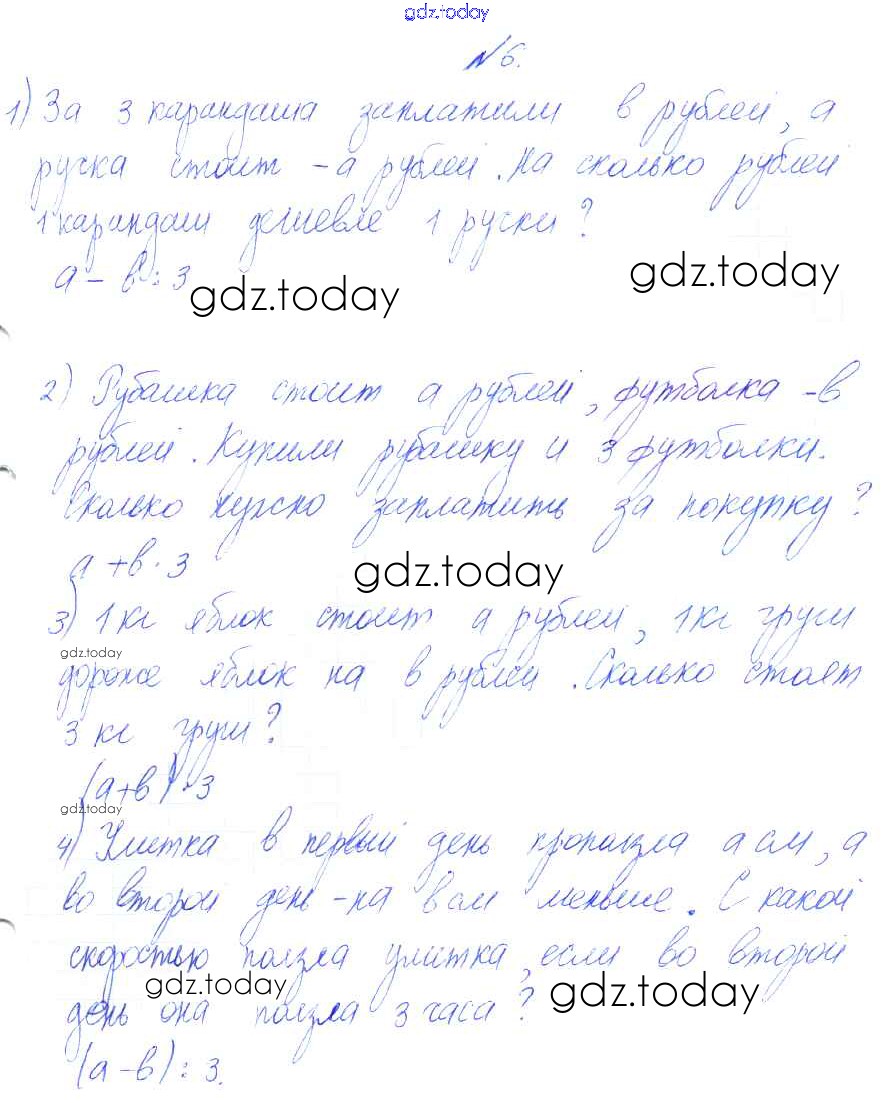 gdz.today
№6.
1) За 3 карандаша заплатили в рублей, а
ручка стоит - а рублей. На сколько рублей
1 карандаш дешевле 1 ручки?
а - в : 3
gdz.today
gdz.today
2) Рубашка стоит а рублей, футболка - в
рублей. Купили рубашку и 3 футболки.
Сколько нужно заплатить за покупку?
а + в · 3
gdz.today
3) 1 кг яблок стоит а рублей, 1 кг груш
gdz.today
дороже яблок на в рублей. Сколько стоят
3 кг груш?
(а+в) · 3
gdz.today
4) Улитка в первый день проползла а см, а
во второй день - на в см меньше. С какой
скоростью ползла улитка, если во второй
gdz.today
gdz.today
день она ползла 3 часа?
(а-в) : 3.